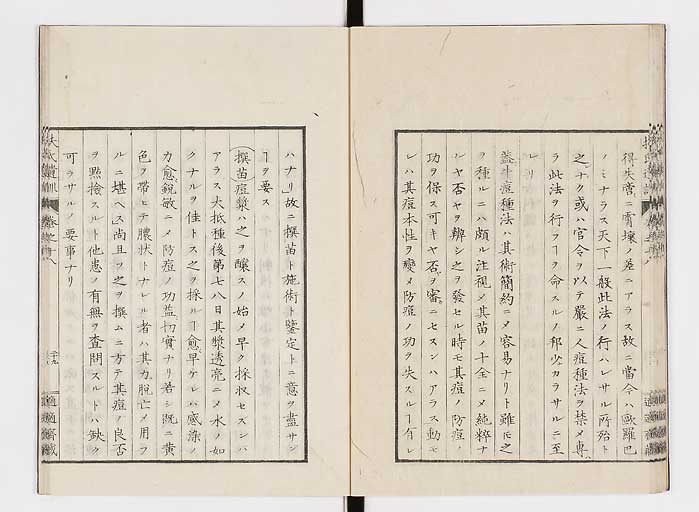 得失啻ニ霄壤ノ差ニアラス故ニ當今ハ歐羅巴
ノミナラス天下一般此法ノ行ハレサル所殆ト
之ナク或ハ官令ヲ以テ嚴ニ人痘種法ヲ禁メ專
ラ此法ヲ行ラヿヲ命スルノ邦少カラサルニ至
レリ
蓋牛痘種法ハ其術簡約ニメ容易ナリト雖𪜈之
ヲ種ルニハ頗ル注視メ其苗ノ十全ニメ純粹ナ
ルヤ否ヤヲ辨シ之ヲ發セル時モ其痘ノ防痘ノ
功ヲ保ス可キヤ否ヲ審ニセスンハアラス動モ
レハ其痘本性ヲ變メ防痘ノ功ヲ失スルヿ有レ
ハナリ故ニ撰苗ト施術ト鑒定トニ意ヲ盡サン
ヿヲ要ス
撰苗痘漿ハ之ヲ釀スノ始メ早ク採收セスンハ
アラス大抵種後第七八日其漿透亮ニメ水ノ如
クナルヲ佳トス之ヲ採ルヿ愈早ケレハ感染ノ
力愈鋭敏ニメ防痘ノ功益切實ナリ若シ既ニ黄
色ヲ帶ヒテ膿狀トナレル者ハ其力脱亡メ用フ
ルニ堪ヘス尚且ツ之ヲ撰ムニ方テ其痘ノ良否
ヲ㸃撿スルト他患ノ有無ヲ査問スルトハ缺ク
可ラサルノ要事ナリ
扶氏遺訓
卷之十八
二十九
適適齋藏